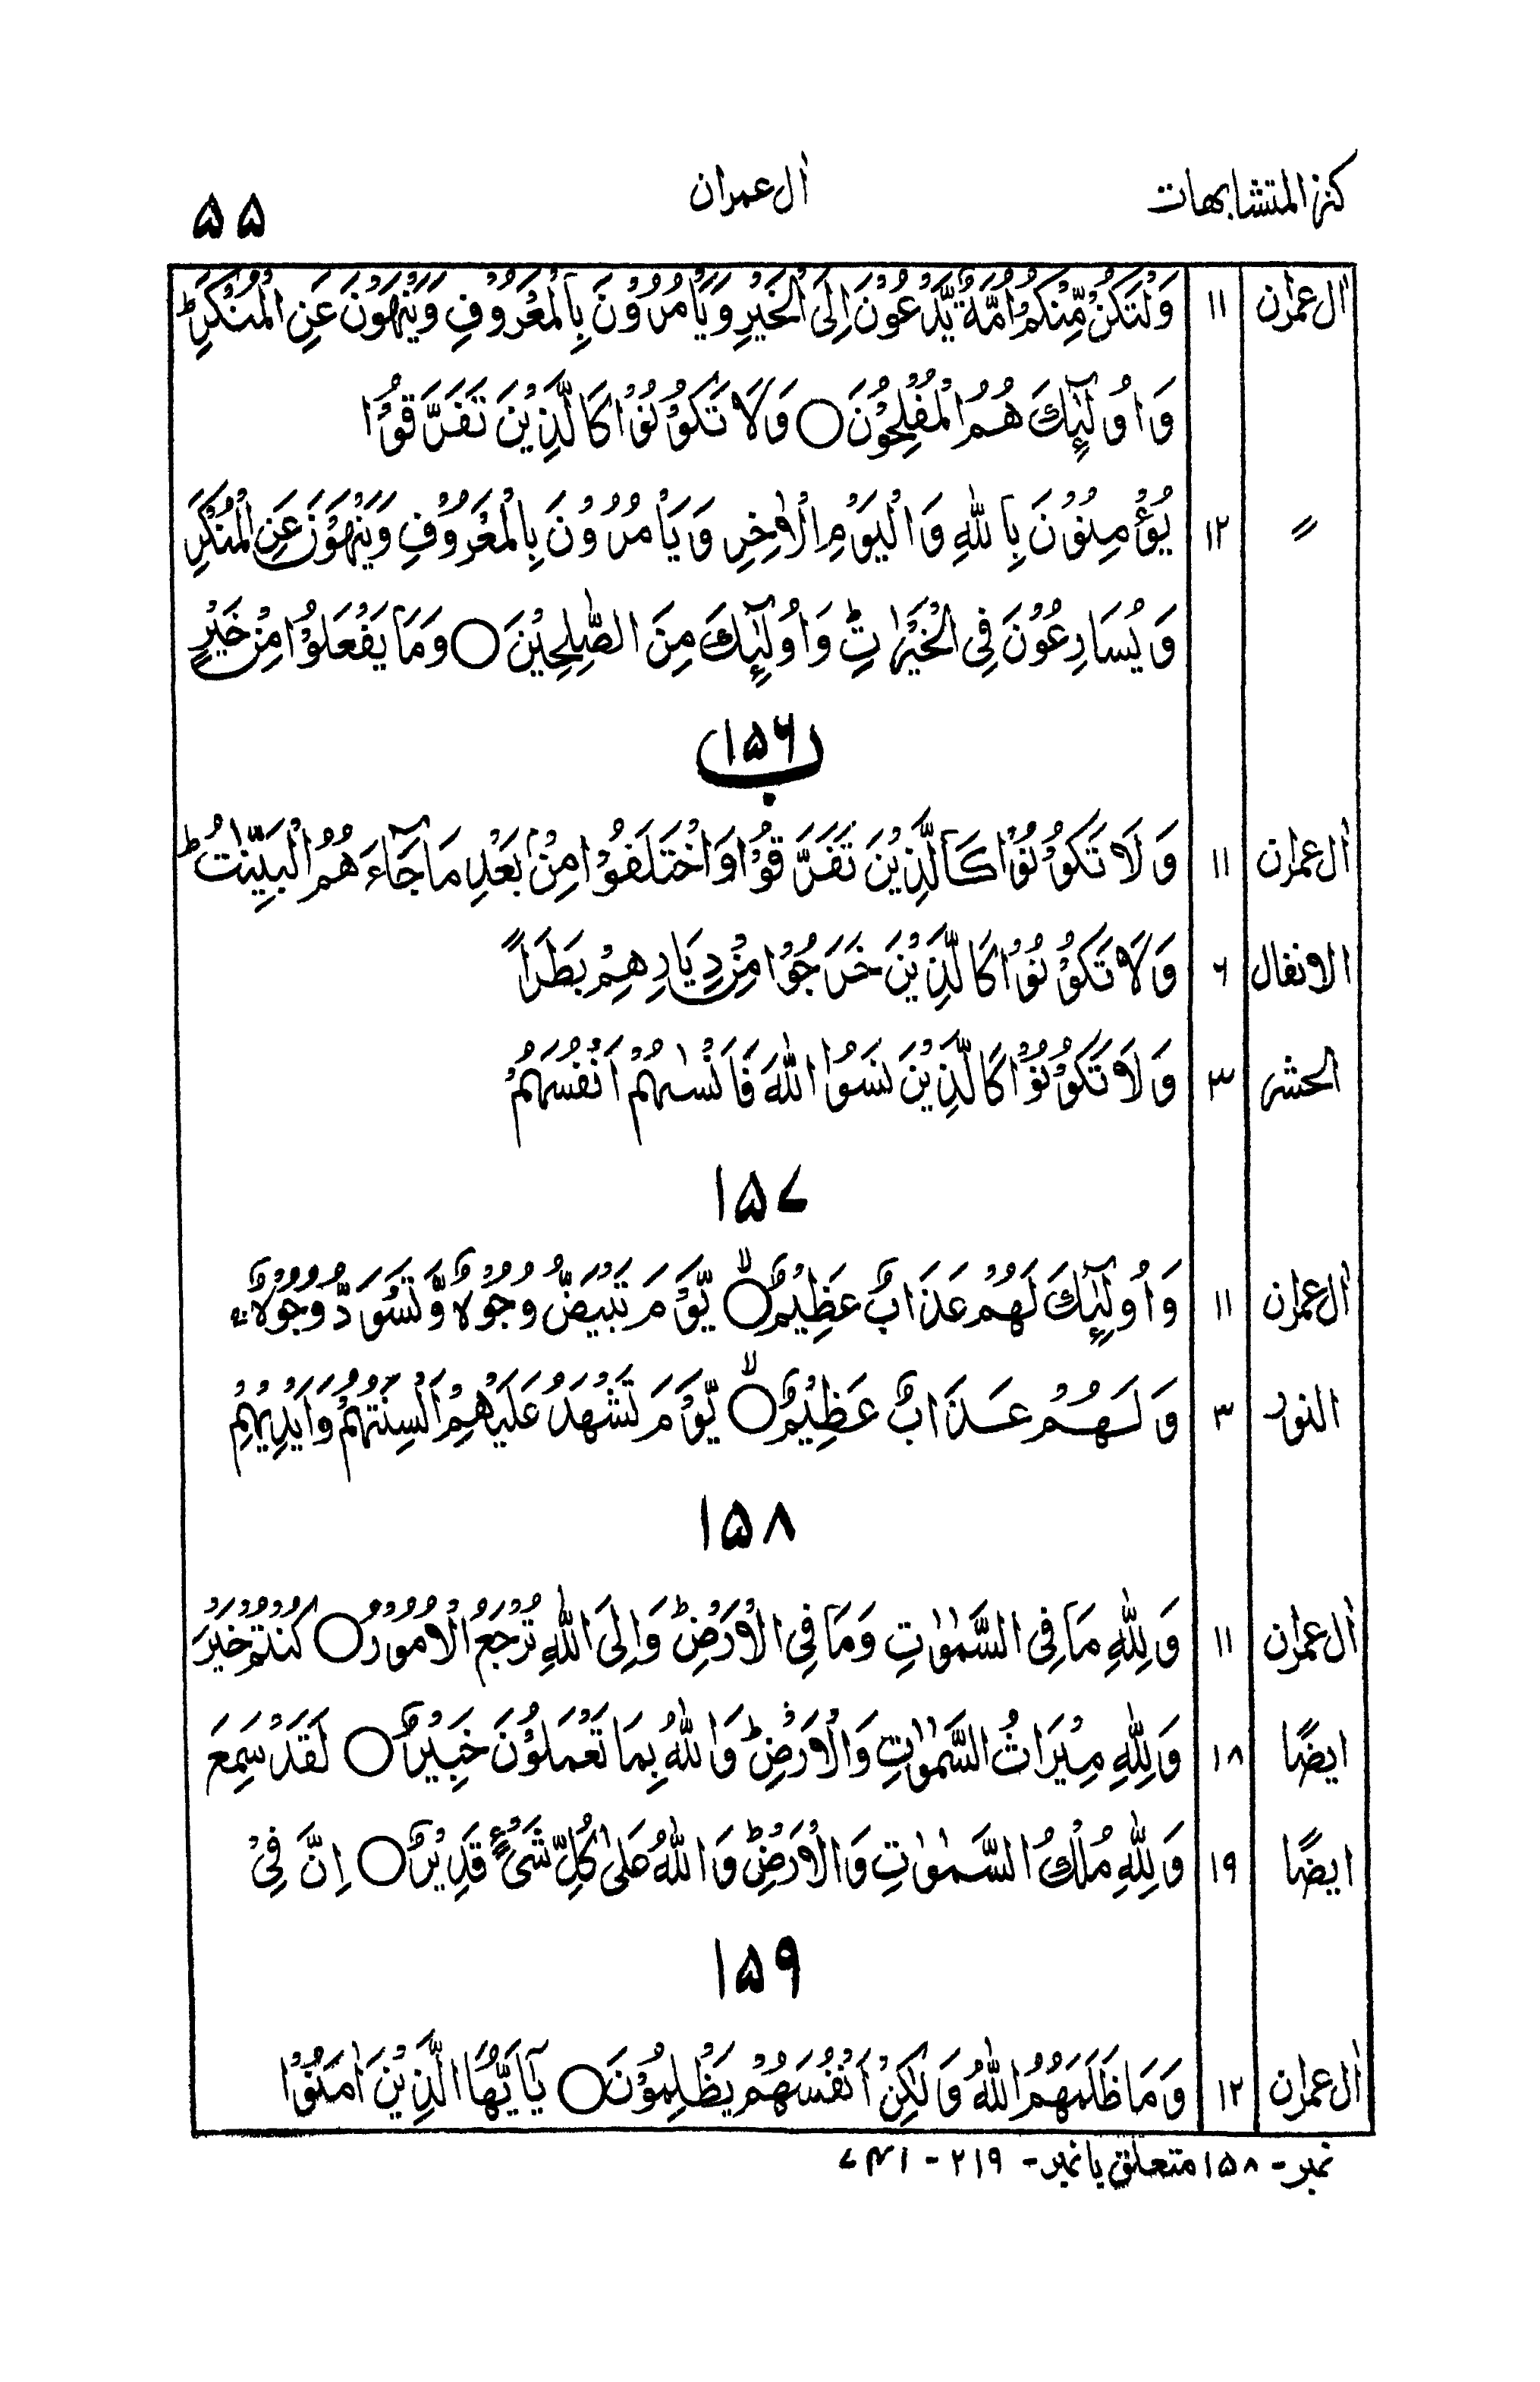 كنز المتشابهات اٰل عمران ۵۵
اٰل عمرٰن ۱۱ وَلْتَكُنْ مِّنْكُمْ اُمَّةٌ يَّدْعُوْنَ اِلَى الْخَيْرِ وَيَاْمُرُوْنَ بِالْمَعْرُوْفِ وَيَنْهَوْنَ عَنِ الْمُنْكَرِ ؕ
وَاُولٰٓئِكَ هُمُ الْمُفْلِحُوْنَ ○ وَلَا تَكُوْنُوْا كَالَّذِيْنَ تَفَرَّقُوْا
〃 ۱۲ يُؤْمِنُوْنَ بِاللّٰهِ وَالْيَوْمِ الْاٰخِرِ وَيَاْمُرُوْنَ بِالْمَعْرُوْفِ وَيَنْهَوْنَ عَنِ الْمُنْكَرِ
وَيُسَارِعُوْنَ فِى الْخَيْرٰتِ ؕ وَاُولٰٓئِكَ مِنَ الصّٰلِحِيْنَ ○ وَمَا يَفْعَلُوْا مِنْ خَيْرٍ
۱۵۶ ب
اٰل عمرٰن ۱۱ وَلَا تَكُوْنُوْا كَالَّذِيْنَ تَفَرَّقُوْا وَاخْتَلَفُوْا مِنْۢ بَعْدِ مَا جَآءَهُمُ الْبَيِّنٰتُ ؕ
الانفال ۶ وَلَا تَكُوْنُوْا كَالَّذِيْنَ خَرَجُوْا مِنْ دِيَارِهِمْ بَطَرًا
الحشر ۳ وَلَا تَكُوْنُوْا كَالَّذِيْنَ نَسُوا اللّٰهَ فَاَنْسٰىهُمْ اَنْفُسَهُمْ
۱۵۷
اٰل عمرٰن ۱۱ وَاُولٰٓئِكَ لَهُمْ عَذَابٌ عَظِيْمٌ ○ۙ يَّوْمَ تَبْيَضُّ وُجُوْهٌ وَّتَسْوَدُّ وُجُوْهٌ ۚ
النور ۳ وَلَهُمْ عَذَابٌ عَظِيْمٌ ○ۙ يَّوْمَ تَشْهَدُ عَلَيْهِمْ اَلْسِنَتُهُمْ وَاَيْدِيْهِمْ
۱۵۸
اٰل عمرٰن ۱۱ وَلِلّٰهِ مَا فِى السَّمٰوٰتِ وَمَا فِى الْاَرْضِ ؕ وَاِلَى اللّٰهِ تُرْجَعُ الْاُمُوْرُ ○ كُنْتُمْ خَيْرَ
ايضًا ۱۸ وَلِلّٰهِ مِيْرَاثُ السَّمٰوٰتِ وَالْاَرْضِ ؕ وَاللّٰهُ بِمَا تَعْمَلُوْنَ خَبِيْرٌ ○ لَقَدْ سَمِعَ
ايضًا ۱۹ وَلِلّٰهِ مُلْكُ السَّمٰوٰتِ وَالْاَرْضِ ؕ وَاللّٰهُ عَلٰى كُلِّ شَىْءٍ قَدِيْرٌ ○ اِنَّ فِىْ
۱۵۹
اٰل عمرٰن ۱۲ وَمَا ظَلَمَهُمُ اللّٰهُ وَلٰكِنْ اَنْفُسَهُمْ يَظْلِمُوْنَ ○ يٰٓاَيُّهَا الَّذِيْنَ اٰمَنُوْا
نمبر - ۱۵۸ متعلق یا نمبر - ۲۱۹ - ۷۴۱